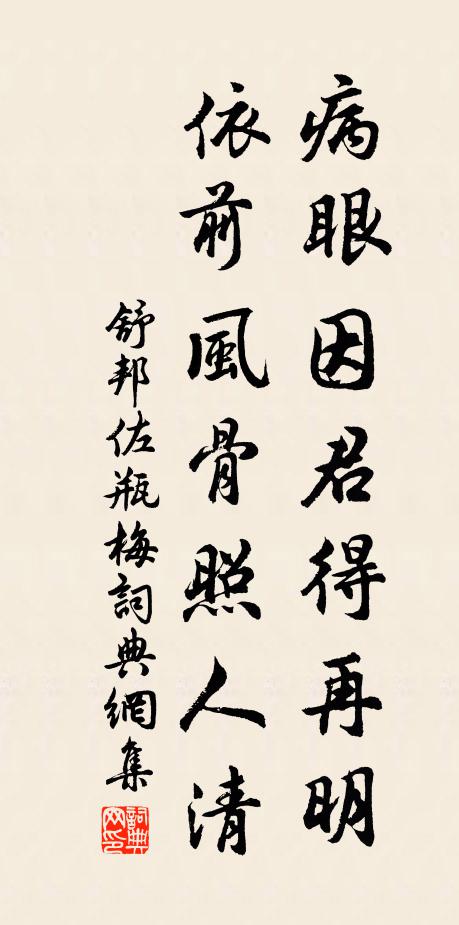 病眼因君得再明
依前風骨照人清
舒邦佐瓶梅詞典網集
詞典網印